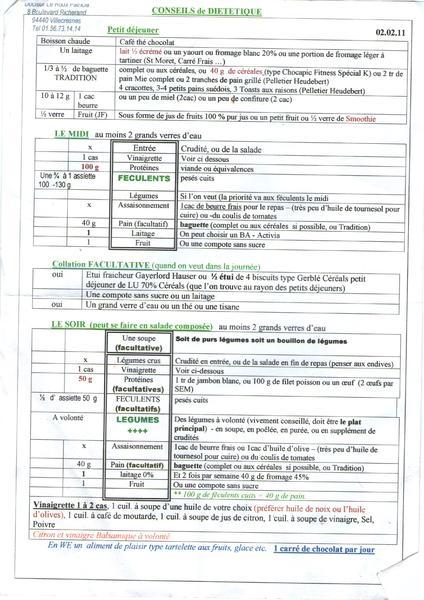 8 Boulevard Richerand
94440 Villecresnes
Tel 01.56.73.14.14
CONSEILS de DIETETIQUE
Petit déjeuner 02.02.11
Boisson chaude Café thé chocolat
Un laitage lait ½ écrémé ou un yaourt ou fromage blanc 20% ou une portion de fromage léger à
tartiner (St Moret, Carré Frais …)
1/3 à ½ de baguette complet ou aux céréales, ou 40 g de céréales (type Chocapic Fitness Spécial K) ou 2 tr de
TRADITION pain Mie complet ou 2 tranches de pain grillé (Pelletier Heudebert)
4 cracottes, 3-4 petits pains suédois, 3 Toasts aux raisons (Pelletier Heudebert)
10 à 12 g 1 cac ou un peu de miel (2cac) ou un peu de confiture (2 cac)
beurre
½ verre Fruit (JF) Sous forme de jus de fruits 100 % pur jus ou un petit fruit ou ½ verre de Smoothie
LE MIDI au moins 2 grands verres d'eau
x Entrée Crudité, ou de la salade
1 cas Vinaigrette Voir ci dessous
100 g Protéines viande ou équivalences
Une ¾ à 1 assiette FECULENTS pesés cuits
100 -130 g
Légumes Si l'on veut (la priorité va aux féculents le midi
x Assaisonnement 1cac de beurre frais pour le repas – (très peu d'huile de tournesol pour
cuire) ou -du coulis de tomates
40 g Pain (facultatif) baguette (complet ou aux céréales si possible, ou Tradition)
1 Laitage On peut choisir un BA - Activia
1 Fruit Ou une compote sans sucre
Collation FACULTATIVE (quand on veut dans la journée)
oui Etui fraicheur Gayerlord Hauser ou ½ étui de 4 biscuits type Gerblé Céréals petit
déjeuner de LU 70% Céréals (que l'on trouve au rayon des petits déjeuners)
Une compote sans sucre ou un laitage
oui Un grand verre d'eau ou un thé ou une tisane
LE SOIR (peut se faire en salade composée) au moins 2 grands verres d'eau
Une soupe Soit de purs légumes soit un bouillon de légumes
(facultative)
x Légumes crus Crudité en entrée, ou de la salade en fin de repas (penser aux endives)
1 cas Vinaigrette Voir ci-dessous
50 g Protéines 1 tr de jambon blanc, ou 100 g de filet poisson ou un œuf (2 œufs par
(facultatives) SEM)
½ d' assiette 50 g FECULENTS pesés cuits
(facultatifs)
A volonté LEGUMES Des légumes à volonté (vivement conseillé, doit être le plat
++++ principal) - en soupe, en poêlée, en purée, ou en supplément de
crudités
x Assaisonnement 1cac de beurre frais ou 1cac d'huile d'olive – (très peu d'huile de
tournesol pour cuire) ou du coulis de tomates
40 g Pain (facultatif) baguette (complet ou aux céréales si possible, ou Tradition)
1 laitage 0% Et 2 fois par semaine 40 g de fromage 45%
1 Fruit Ou une compote sans sucre
** 100 g de féculents cuits = 40 g de pain.
Vinaigrette 1 à 2 cas, 1 cuil. à soupe d'une huile de votre choix (préférer huile de noix ou l'huile
d'olives), 1 cuil. à café de moutarde, 1 cuil. à soupe de jus de citron, 1 cuil. à soupe de vinaigre, Sel,
Poivre
Citron et vinaigre Balsamique à volonté
En WE un aliment de plaisir type tartelette aux fruits, glace etc. 1 carré de chocolat par jour